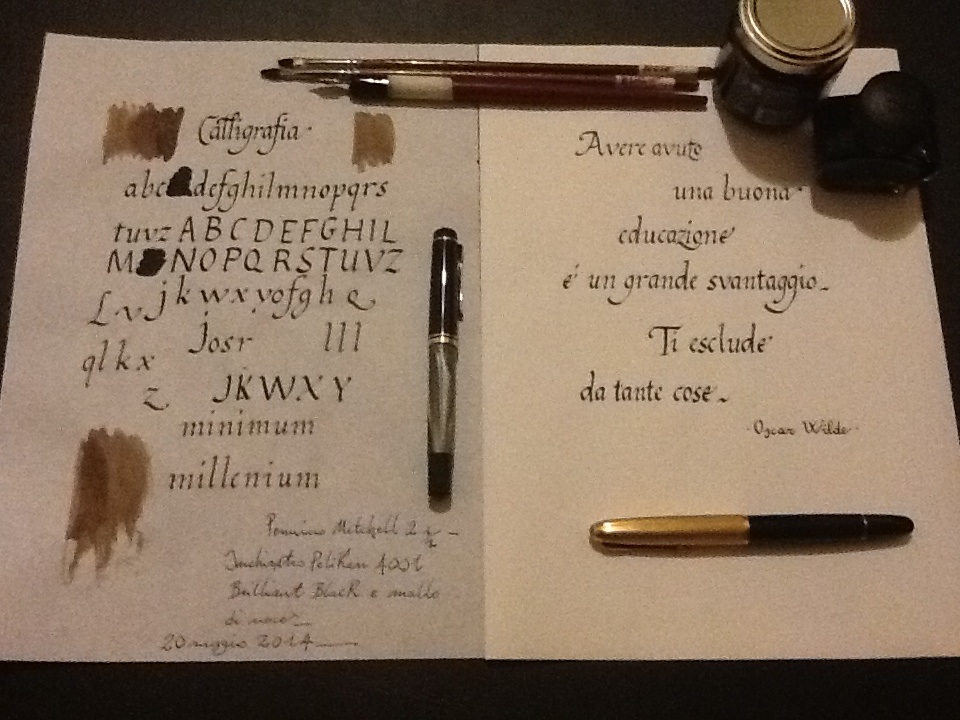 Calligrafia
abc defghilmnopqrs
tuvz ABCDEFGHIL
M NOPQRSTUVZ
L v j k w x y o f g h Q
josr lll
ql k x
z JKWXY
minimum
millenium
Pennino Mitchell 2 ½ -
Inchiostro Pelikan 4001
Brilliant Black e mallo
di noce
20 maggio 2014
Avere avuto
una buona
educazione
é un grande svantaggio
Ti esclude
da tante cose
Oscar Wilde